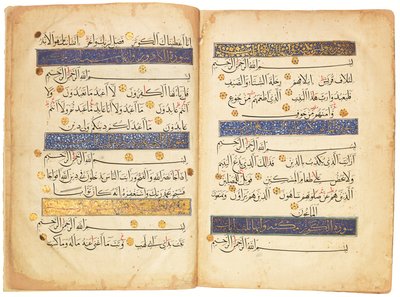 بسم الله الرحمن الرحيم
لايلاف قريش ايلافهم رحلة الشتاء والصيف
فليعبدوا رب هذا البيت الذي اطعمهم من جوع
وآمنهم من خوف
بسم الله الرحمن الرحيم
ارايت الذي يكذب بالدين فذلك الذي يدع اليتيم
ولا يحض على طعام المسكين فويل للمصلين
الذين هم عن صلاتهم ساهون الذين هم يراؤن ويمنعون
الماعون
سورة الكوثر مكية
بسم الله الرحمن الرحيم
انا اعطيناك الكوثر فصل لربك وانحر ان شانئك هو الابتر
بسم الله الرحمن الرحيم
قل يا ايها الكافرون لا اعبد ما تعبدون ولا
انتم عابدون ما اعبد ولا انا عابد ما عبدتم ولا انتم
عابدون ما اعبد لكم دينكم ولي دين
بسم الله الرحمن الرحيم
اذا جاء نصر الله والفتح ورايت الناس يدخلون في دين الله افواجا
فسبح بحمد ربك واستغفره انه كان توابا
بسم الله الرحمن الرحيم
تبت يدا ابي لهب وتب ما اغنى عنه ماله وما كسب